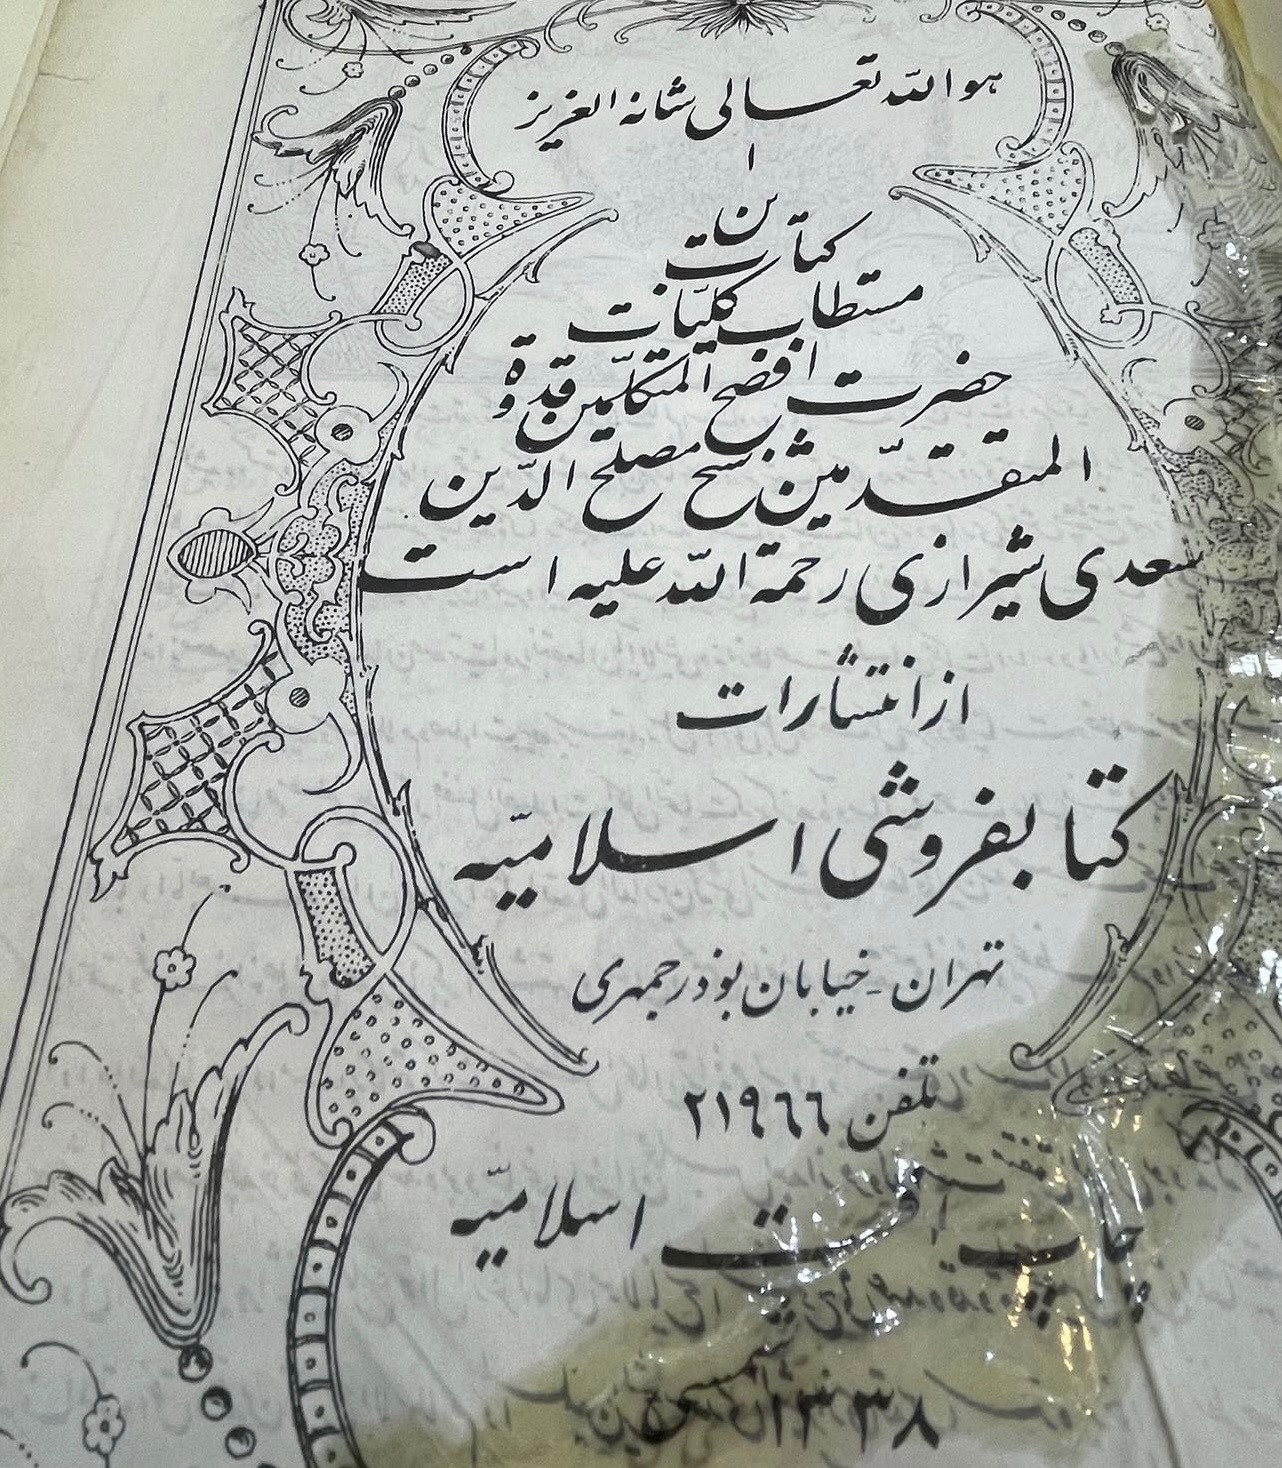 هو الله تعالی شانه العزیز
ا
ین
کتاب
مستطاب کلیّات
حضرت افصح المتکلّمین قدوة
المتقدّمین شیخ مصلح الدّین
سعدی شیرازی رحمة الله علیه است
از انتشارات
کتابفروشی اسلامیّه
تهران - خیابان بوذرجمهری
تلفن ۲۱۹۶۶
چاپ افست اسلامیّه
۱۳۳۸ شمسی